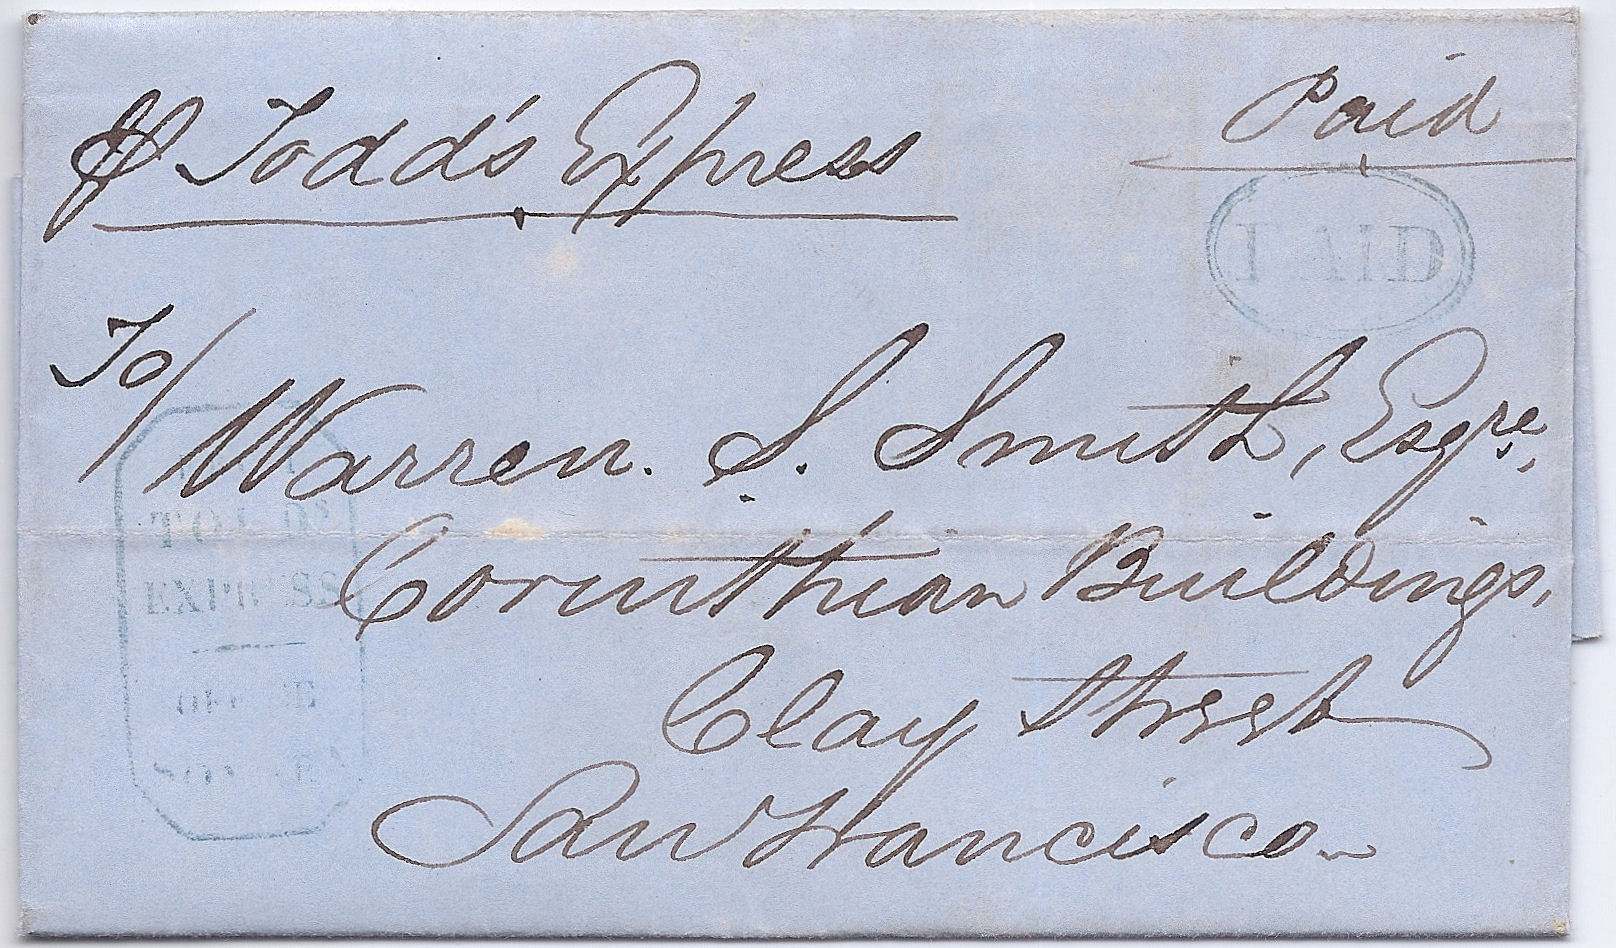 ⅌ Todd's Express
Paid
PAID
To/
Warren. S. Smith, Esqre,
Corinthian Buildings,
Clay Street
San Francisco
TODD'S
EXPRESS
OFFICE